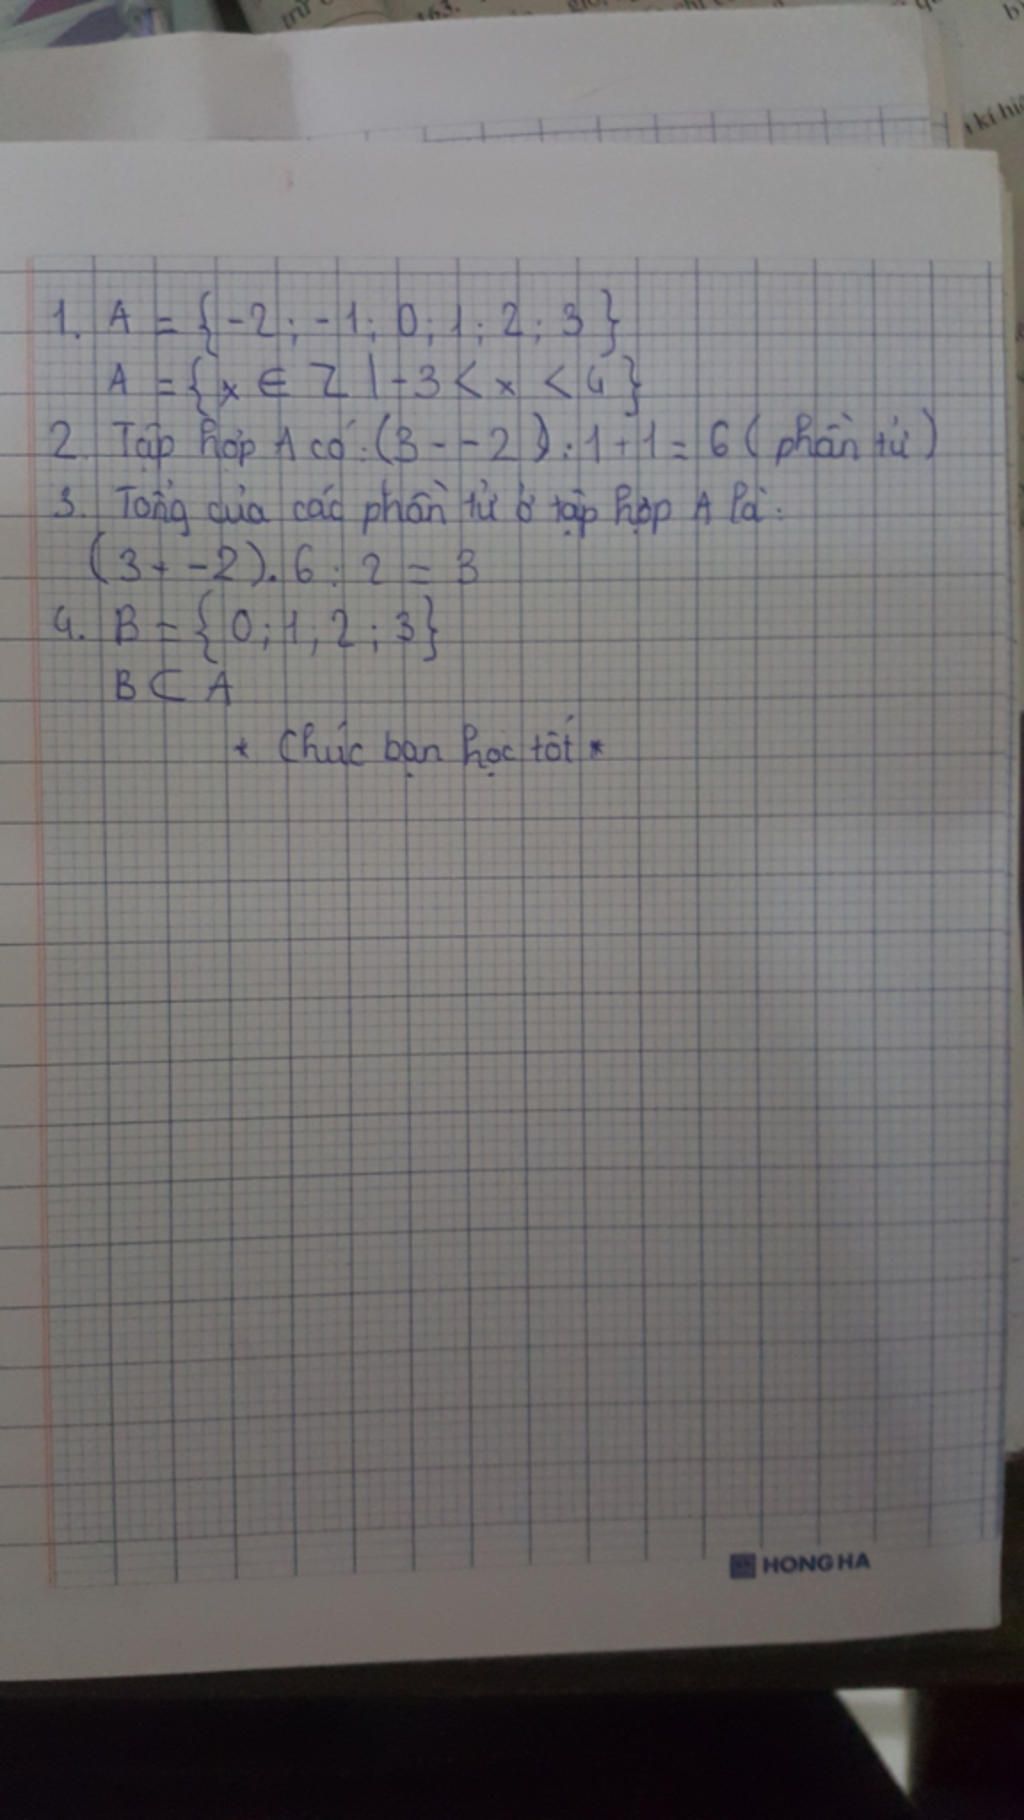 1. A = {-2; -1; 0; 1; 2; 3}
A = {x ∈ Z | -3 < x < 4}
2. Tập hợp A có: (3 - -2) : 1 + 1 = 6 (phần tử)
3. Tổng của các phần tử ở tập hợp A là:
(3 + -2). 6 : 2 = 3
4. B = {0; 1, 2; 3}
B ⊂ A
* Chúc bạn học tốt *
HONG HA